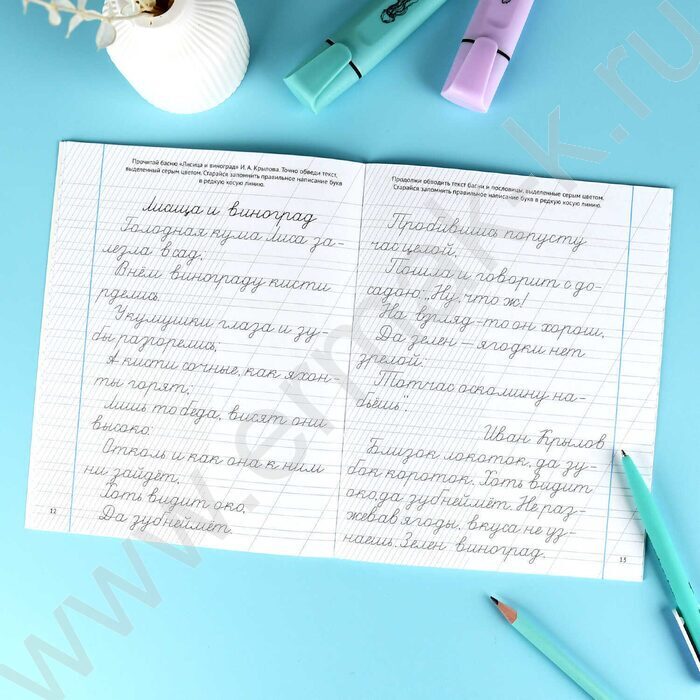 Прочитай басню «Лисица и виноград» И. А. Крылова. Точно обведи текст,
выделенный серым цветом. Старайся запомнить правильное написание букв
в редкую косую линию.
Лисица и виноград
Голодная кума Лиса за-
лезла в сад,
В нём винограду кисти
рделись.
У кумушки глаза и зу-
бы разгорелись;
А кисти сочные, как яхон-
ты горят;
Лишь то беда, висят они
высоко:
Отколь и как она к ним
ни зайдёт,
Хоть видит око,
Да зуб неймёт.
12
Продолжи обводить текст басни и пословицы, выделенные серым цветом.
Старайся запомнить правильное написание букв в редкую косую линию.
Пробившись попусту
час целой,
Пошла и говорит с до-
садою: „Ну, что ж!
На взгляд-то он хорош,
Да зелен — ягодки нет
зрелой:
Тотчас оскомину на-
бьёшь".
Иван Крылов
Близок локоток, да зу-
бок короток. Хоть видит
око, да зуб неймёт. Не раз-
жевав ягоды, вкуса не уз-
наешь. Зелен виноград.
13
www.ermak.ru